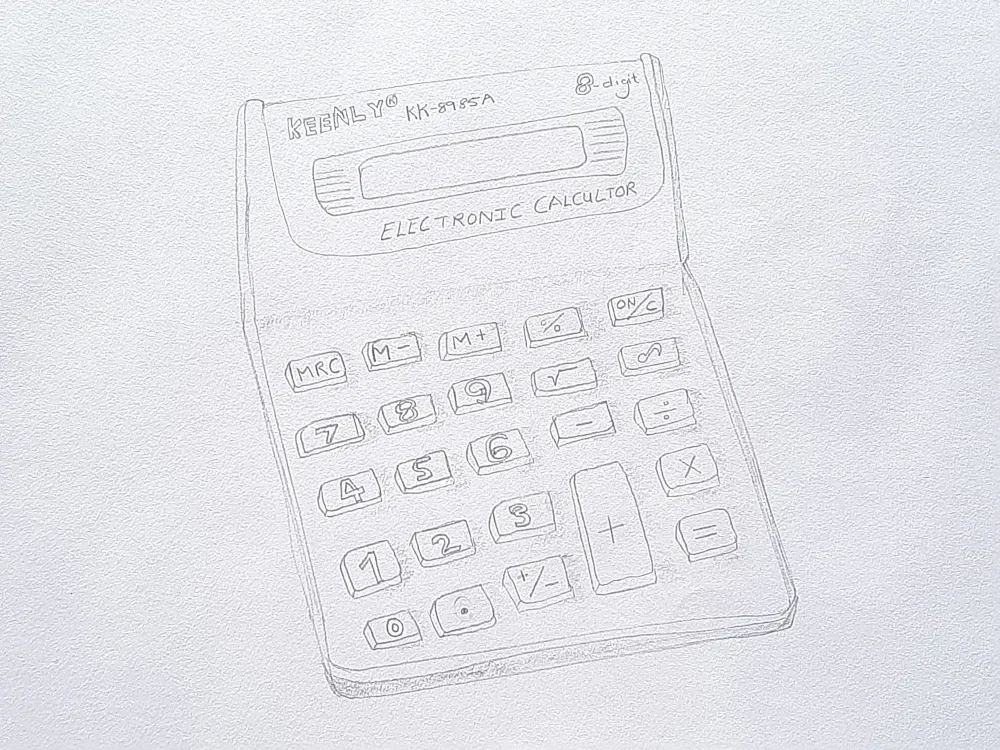 KEENLY® KK-8985A 8-digit
ELECTRONIC CALCULTOR
MRC M- M+ % ON/C
7 8 9 √
4 5 6 - ÷
1 2 3 + X
0 . +/- =